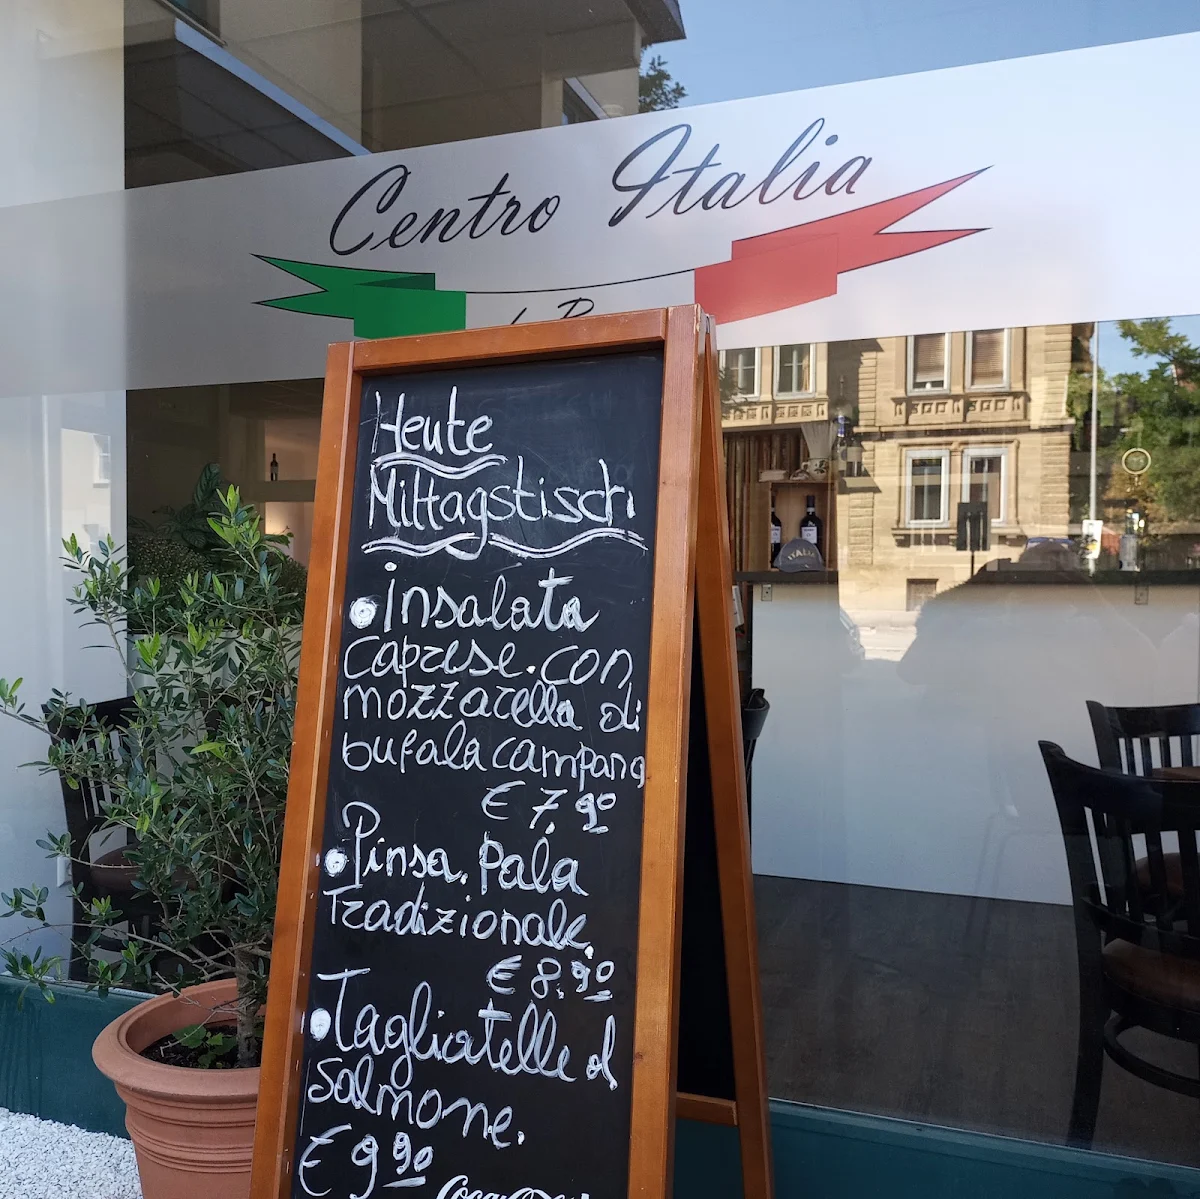 Centro Italia
Heute
Mittagstisch
insalata
caprese. con
mozzarella di
bufala campana
€ 7,90
Pinsa. Pala
Tradizionale.
€ 8.90
Tagliatelle al
salmone.
€ 9 90
ITALIA